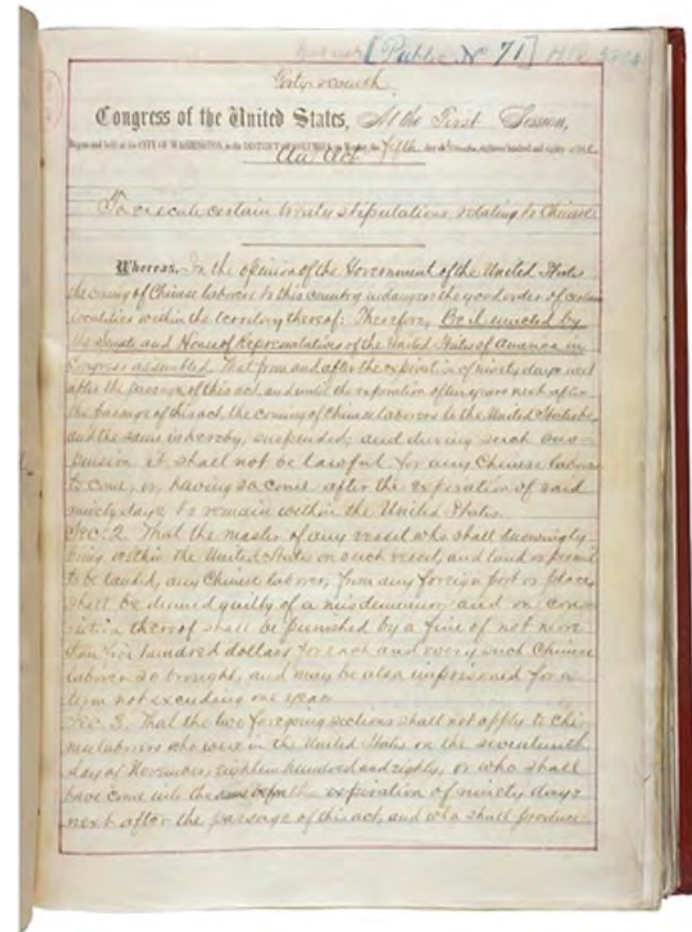 [Public No 71] H.R. 5804
Forty-seventh
Congress of the United States, At the First Session,
Begun and held at the CITY OF WASHINGTON, in the DISTRICT OF COLUMBIA, on Monday, the fifth day of December, eighteen hundred and eighty-one
An Act
To execute certain treaty stipulations relating to Chinese
Whereas, In the opinion of the Government of the United States
the coming of Chinese laborers to this country endangers the good order of certain
localities within the territory thereof: Therefore, Be it enacted by
the Senate and House of Representatives of the United States of America in
Congress assembled, That from and after the expiration of ninety days next
after the passage of this act, and until the expiration of ten years next after
the passage of this act, the coming of Chinese laborers to the United States be,
and the same is hereby, suspended; and during such sus-
pension it shall not be lawful for any Chinese laborer
to come, or, having so come after the expiration of said
ninety days to remain within the United States.
Sec. 2. That the master of any vessel who shall knowingly
bring within the United States on such vessel, and land or permit
to be landed, any Chinese laborer, from any foreign port or place,
shall be deemed guilty of a misdemeanor, and on conv-
iction thereof shall be punished by a fine of not more
than five hundred dollars for each and every such Chinese
laborer so brought, and may be also imprisoned for a
term not exceeding one year.
Sec. 3. That the two foregoing sections shall not apply to Chi-
nese laborers who were in the United States on the seventeenth
day of November, eighteen hundred and eighty, or who shall
have come into the same before the expiration of ninety days
next after the passage of this act, and who shall produce